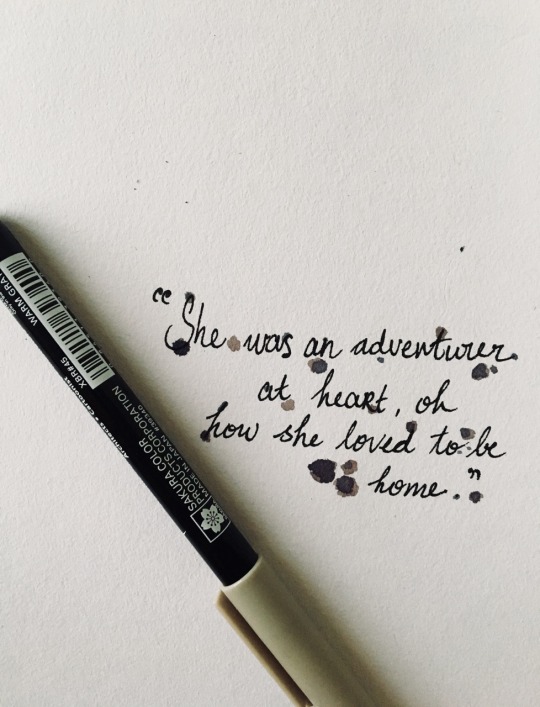 “She was an adventurer
at heart, oh
how she loved to be
home.”
WARM GRAY
XBR#45
Architects • Cartoonist
SAKURA COLOR
PRODUCTS CORPORATION
MADE IN JAPAN